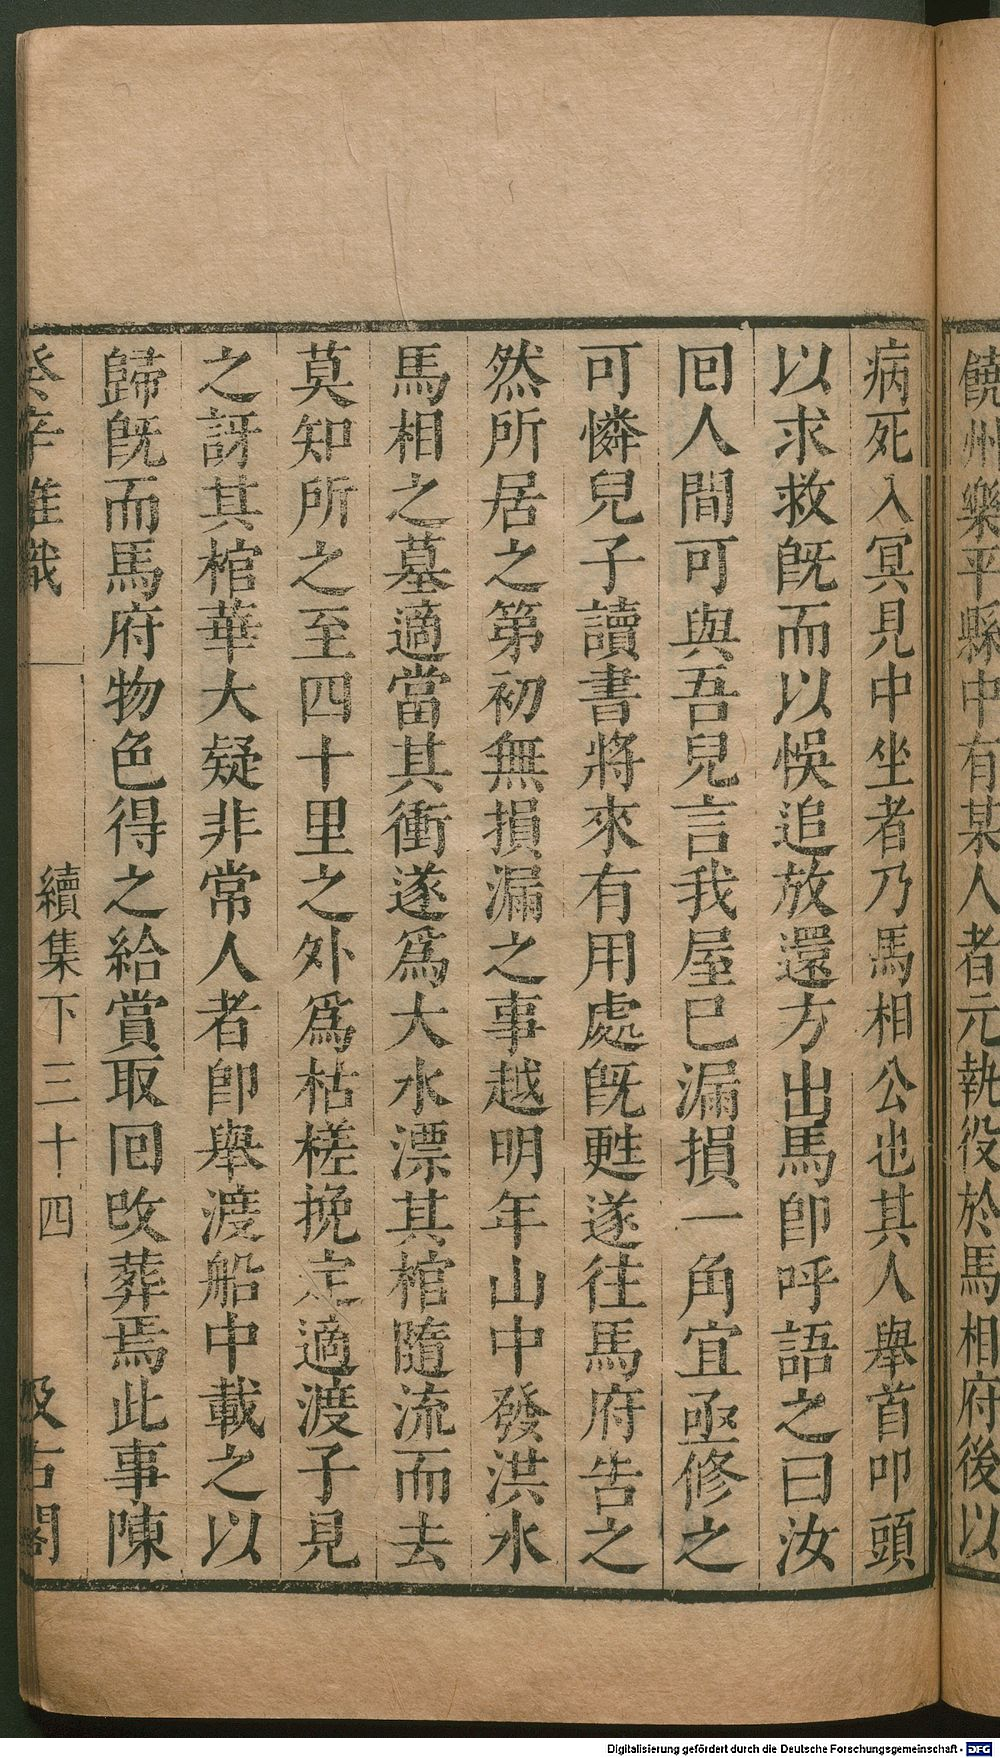 饒州樂平縣中有某人者元執役於馬相府後以
病死入冥見中坐者乃馬相公也其人舉首叩頭
以求救旣而以悞追放還方出馬卽呼語之曰汝
囘人間可與吾兒言我屋已漏損一角宜亟修之
可憐兒子讀書將來有用處旣甦遂往馬府告之
然所居之第初無損漏之事越明年山中發洪水
馬相之墓適當其衝遂爲大水漂其棺隨流而去
莫知所之至四十里之外爲枯槎挽定適渡子見
之訝其棺華大疑非常人者卽舉渡船中載之以
歸旣而馬府物色得之給賞取囘改葬焉此事陳
癸辛雜識
續集下三十四
汲古閣
Digitalisierung gefördert durch die Deutsche Forschungsgemeinschaft - DFG